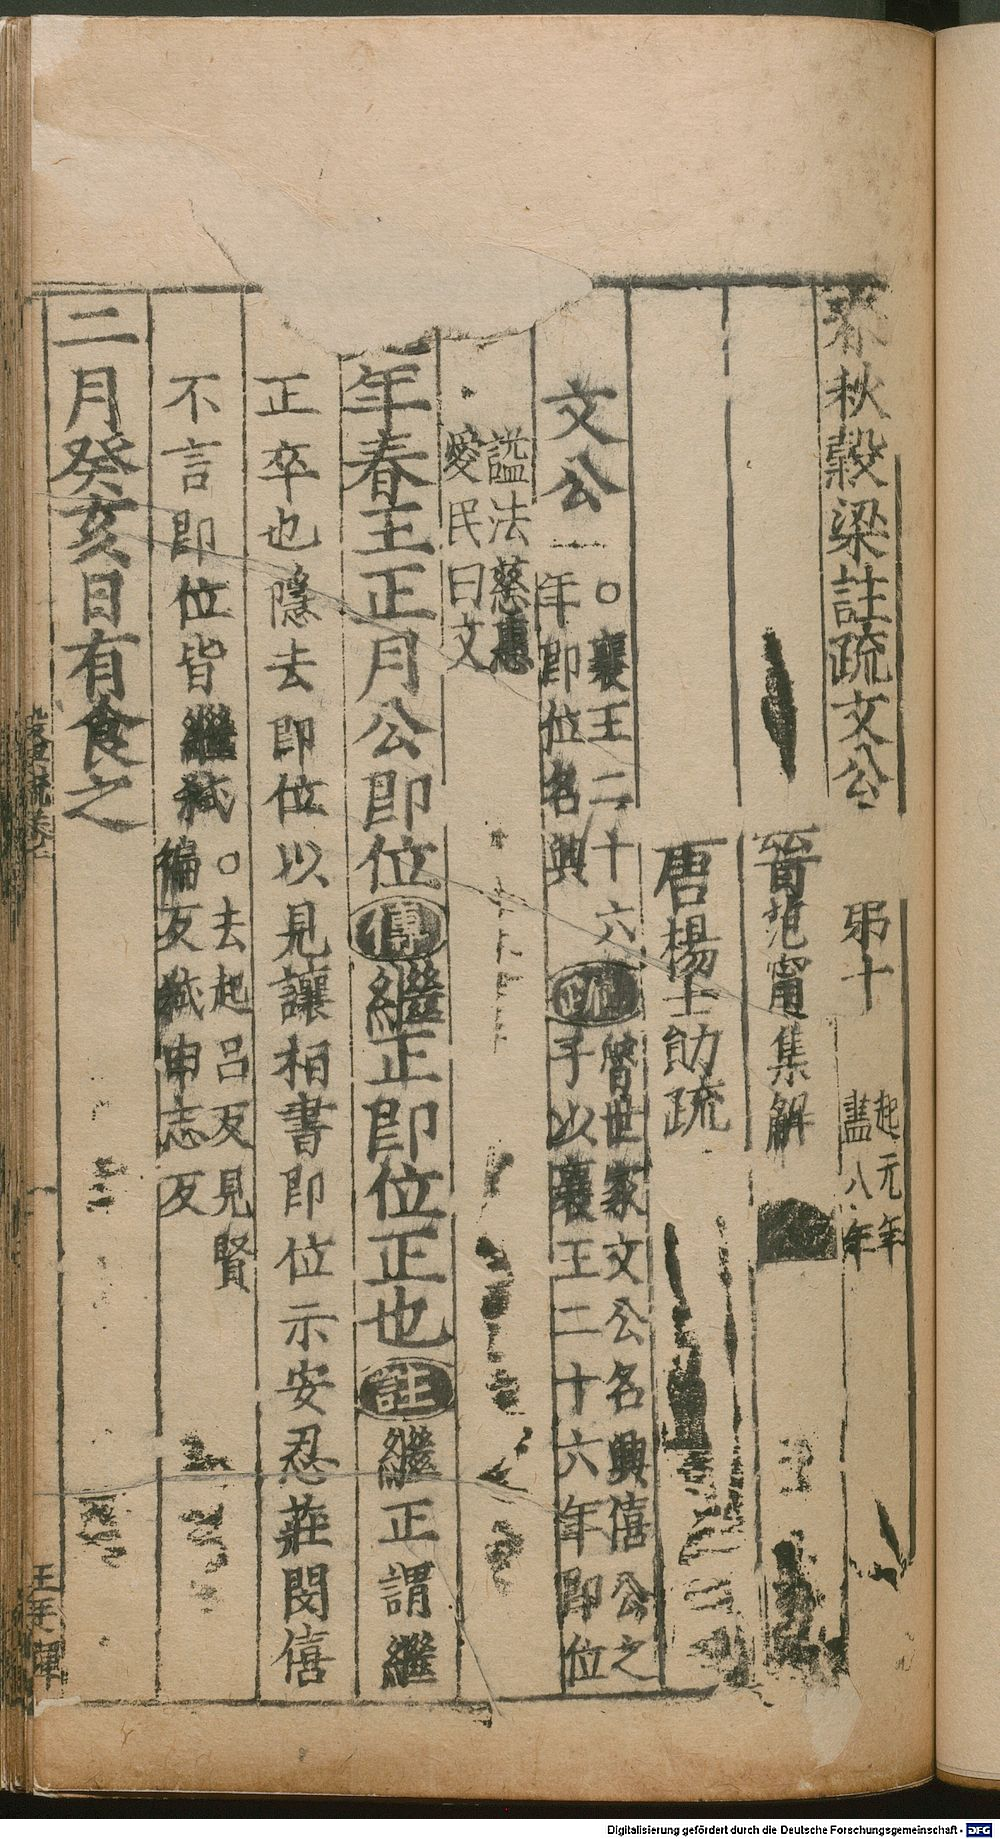 春秋穀梁註疏文公 弟十 起元年盡八年
晉范甯集解
唐楊士勛疏
文公 ○襄王二十六年即位名興 疏 魯世家文公名興僖公之子以襄王二十六年即位
謚法慈惠愛民曰文
年春王正月公即位 傳 繼正即位正也 註 繼正謂繼
正卒也隱去即位以見讓桓書即位示安忍莊閔僖
不言即位皆繼弒 ○去起呂反見賢徧反弒申志反
二月癸亥日有食之
Digitalisierung gefördert durch die Deutsche Forschungsgemeinschaft - DFG